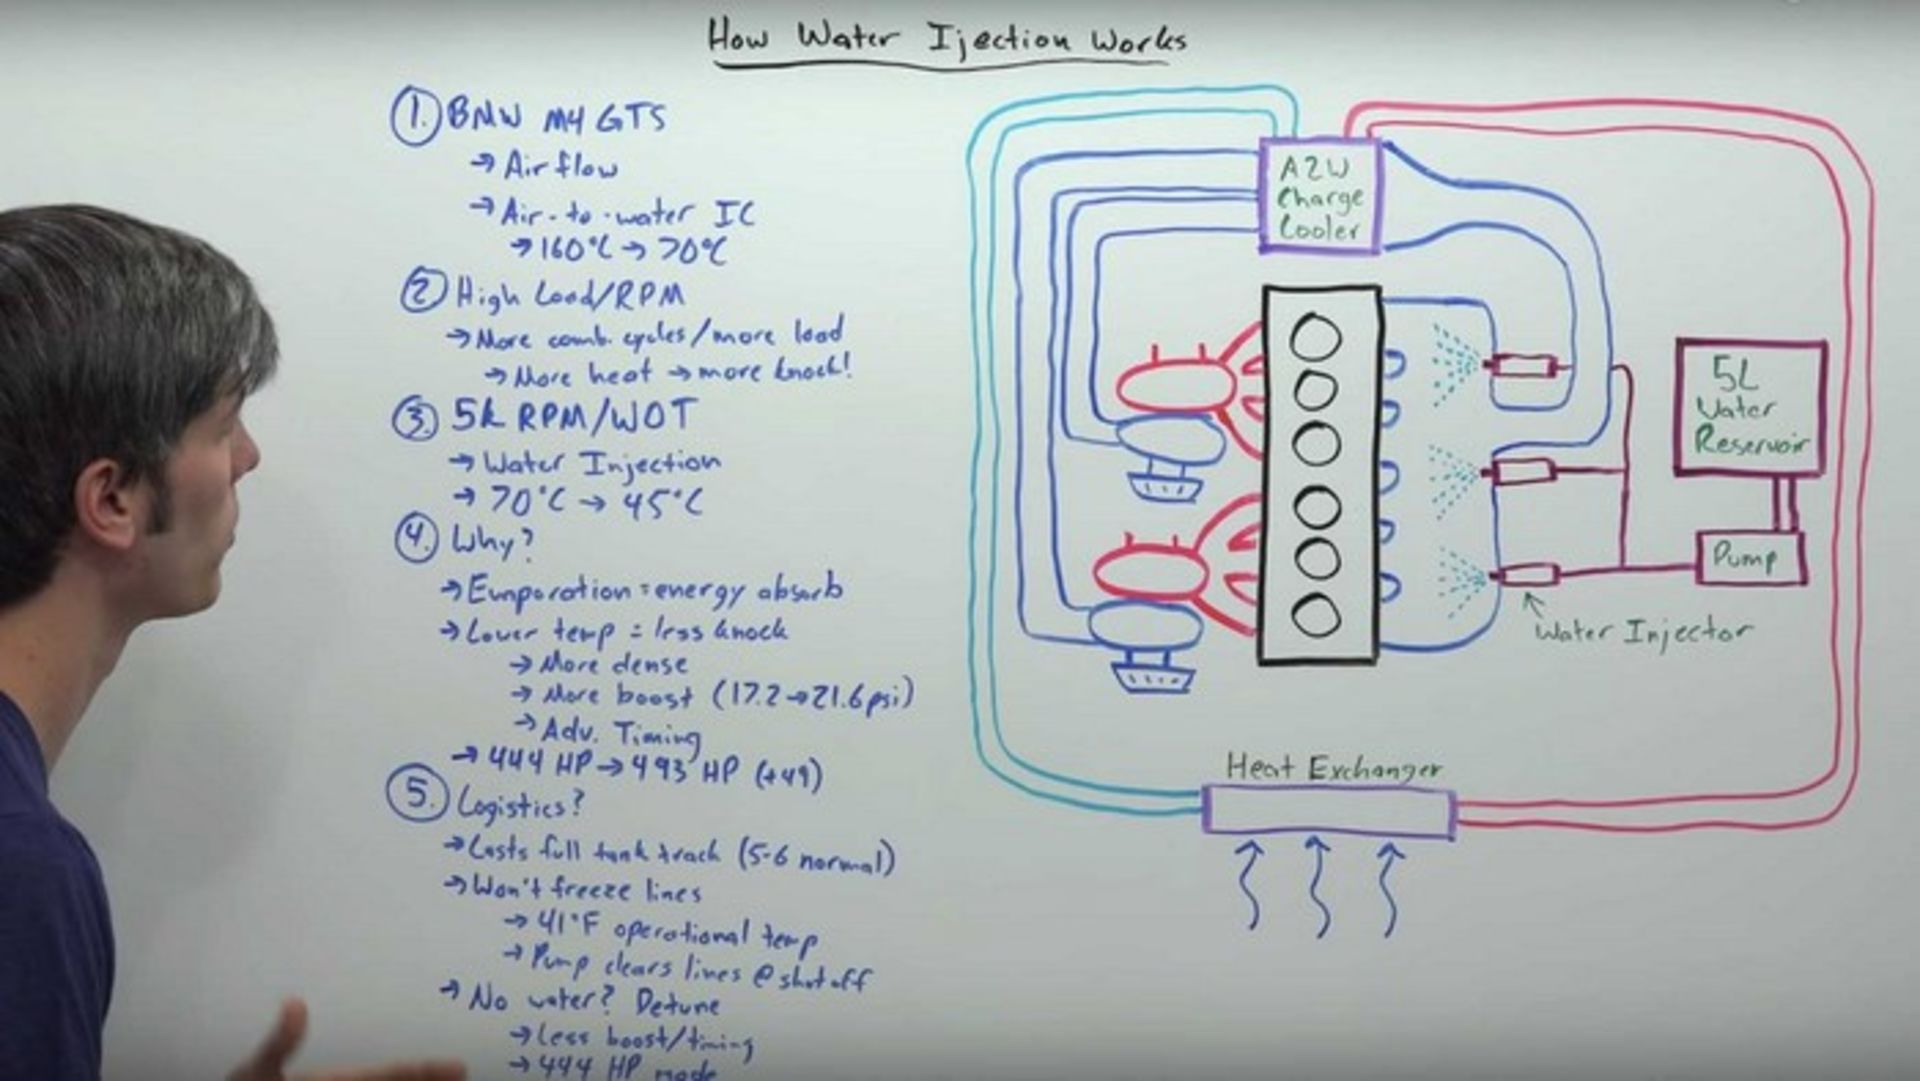 How Water Ijection Works
1. BMW M4 GTS
→ Airflow
→ Air-to-water IC
→ 160°C → 70°C
2 High Load/RPM
→ More comb. cycles/more load
→ More heat → more knock!
3. 5k RPM/WOT
→ Water Injection
→ 70°C → 45°C
4. Why?
→ Evaporation = energy absorb
→ Lower temp = less knock
→ More dense
→ More boost (17.2→21.6psi)
→ Adv. Timing
→ 444 HP → 493 HP (+49)
5. Logistics?
→ Lasts full tank track (5-6 normal)
→ Won't freeze lines
→ 41°F operational temp
→ Pump clears lines @ shutoff
→ No water? Detune
→ Less boost/timing
→ 444 HP mode
A2W
Charge
Cooler
5L
Water
Reservoir
Pump
Water Injector
Heat Exchanger